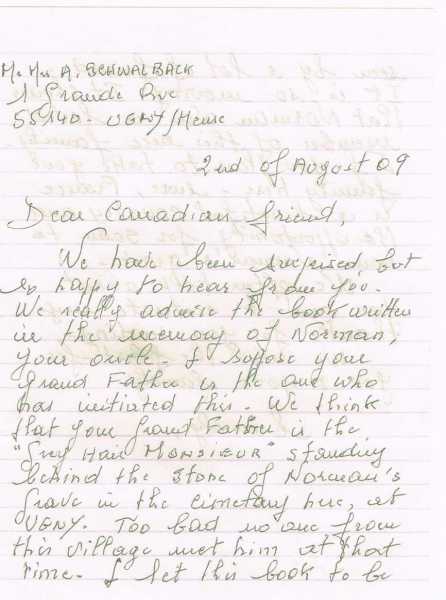 Mr Mrs A. SCHWALBACK
1 Grande Rue
55140 - UGNY/Meuse
2nd of August 09
Dear Canadian friend,
We have been surprised but
so happy to hear from you.
We really admire the book written
in the memory of Norman,
your oncle. I suppose your
grand Father is the one who
has initiated this. We think
that your Grand Father is the
"Grey Hair MONSIEUR" standing
behind the stone of Norman's
grave in the cimetary here, at
UGNY. Too bad no one from
this village met him at that
time. I let this book to be